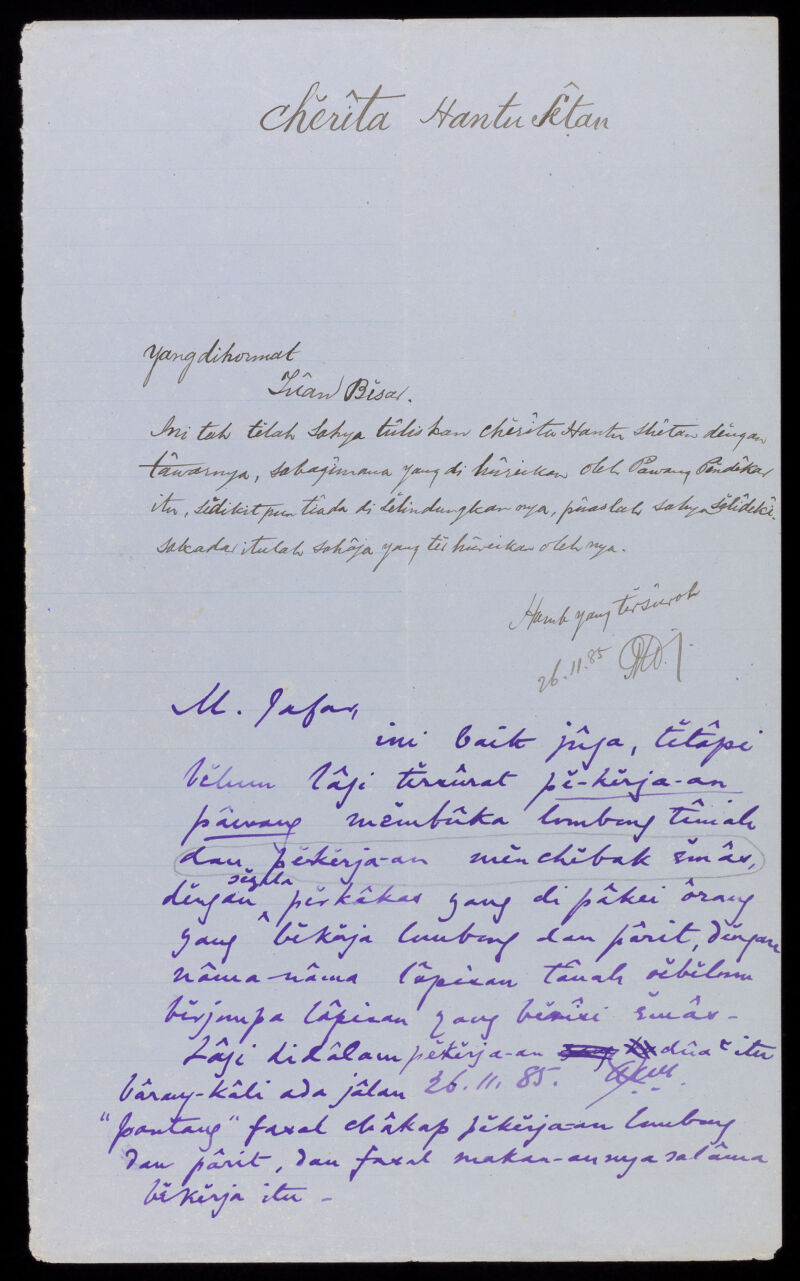 chĕrîta Hantu Sêtan
yang dihormat
Tûan Bĕsar.
Ini lah tĕlah sahya tûliskan chĕrîta Hantu shêtan dĕngan
tâwarnya, sabagîmana yang di hûreikan oleh Pawang Pĕndêkar
itu, sĕdikit pun tîada di sĕlindungkan nya, pûaslah sahya sĕlîdekî.
sakadar itulah sahâja yang tĕr hûreikan oleh nya.
Hamb yang tĕrsûroh
26.11.85
M. Jafar,
ini baik jûga, tĕtâpi
bĕlum lâgi tĕrsûrat pĕ-kĕrja-an
pâwang mĕmbûka lombong tîmah
dan pĕkĕrja-an mĕnchĕbak ĕmâs,
dĕngan sĕgala pĕrkâkas yang di pâkei ôrang
yang bĕkĕrja lombong dan pârit, dĕngan
nâma-nâma lâpisan tânah sĕbĕlom
bĕrjumpa lâpisan yang bĕrîsi ĕmâs -
Lâgi didâlam pĕkĕrja-an dûa² itu
bârang-kâli ada jâlan 26.11.85.
"pantang" fasal châkap pĕkĕrja-an lombong
dan pârit, dan fasal makan-annya salâma
bĕkĕrja itu -